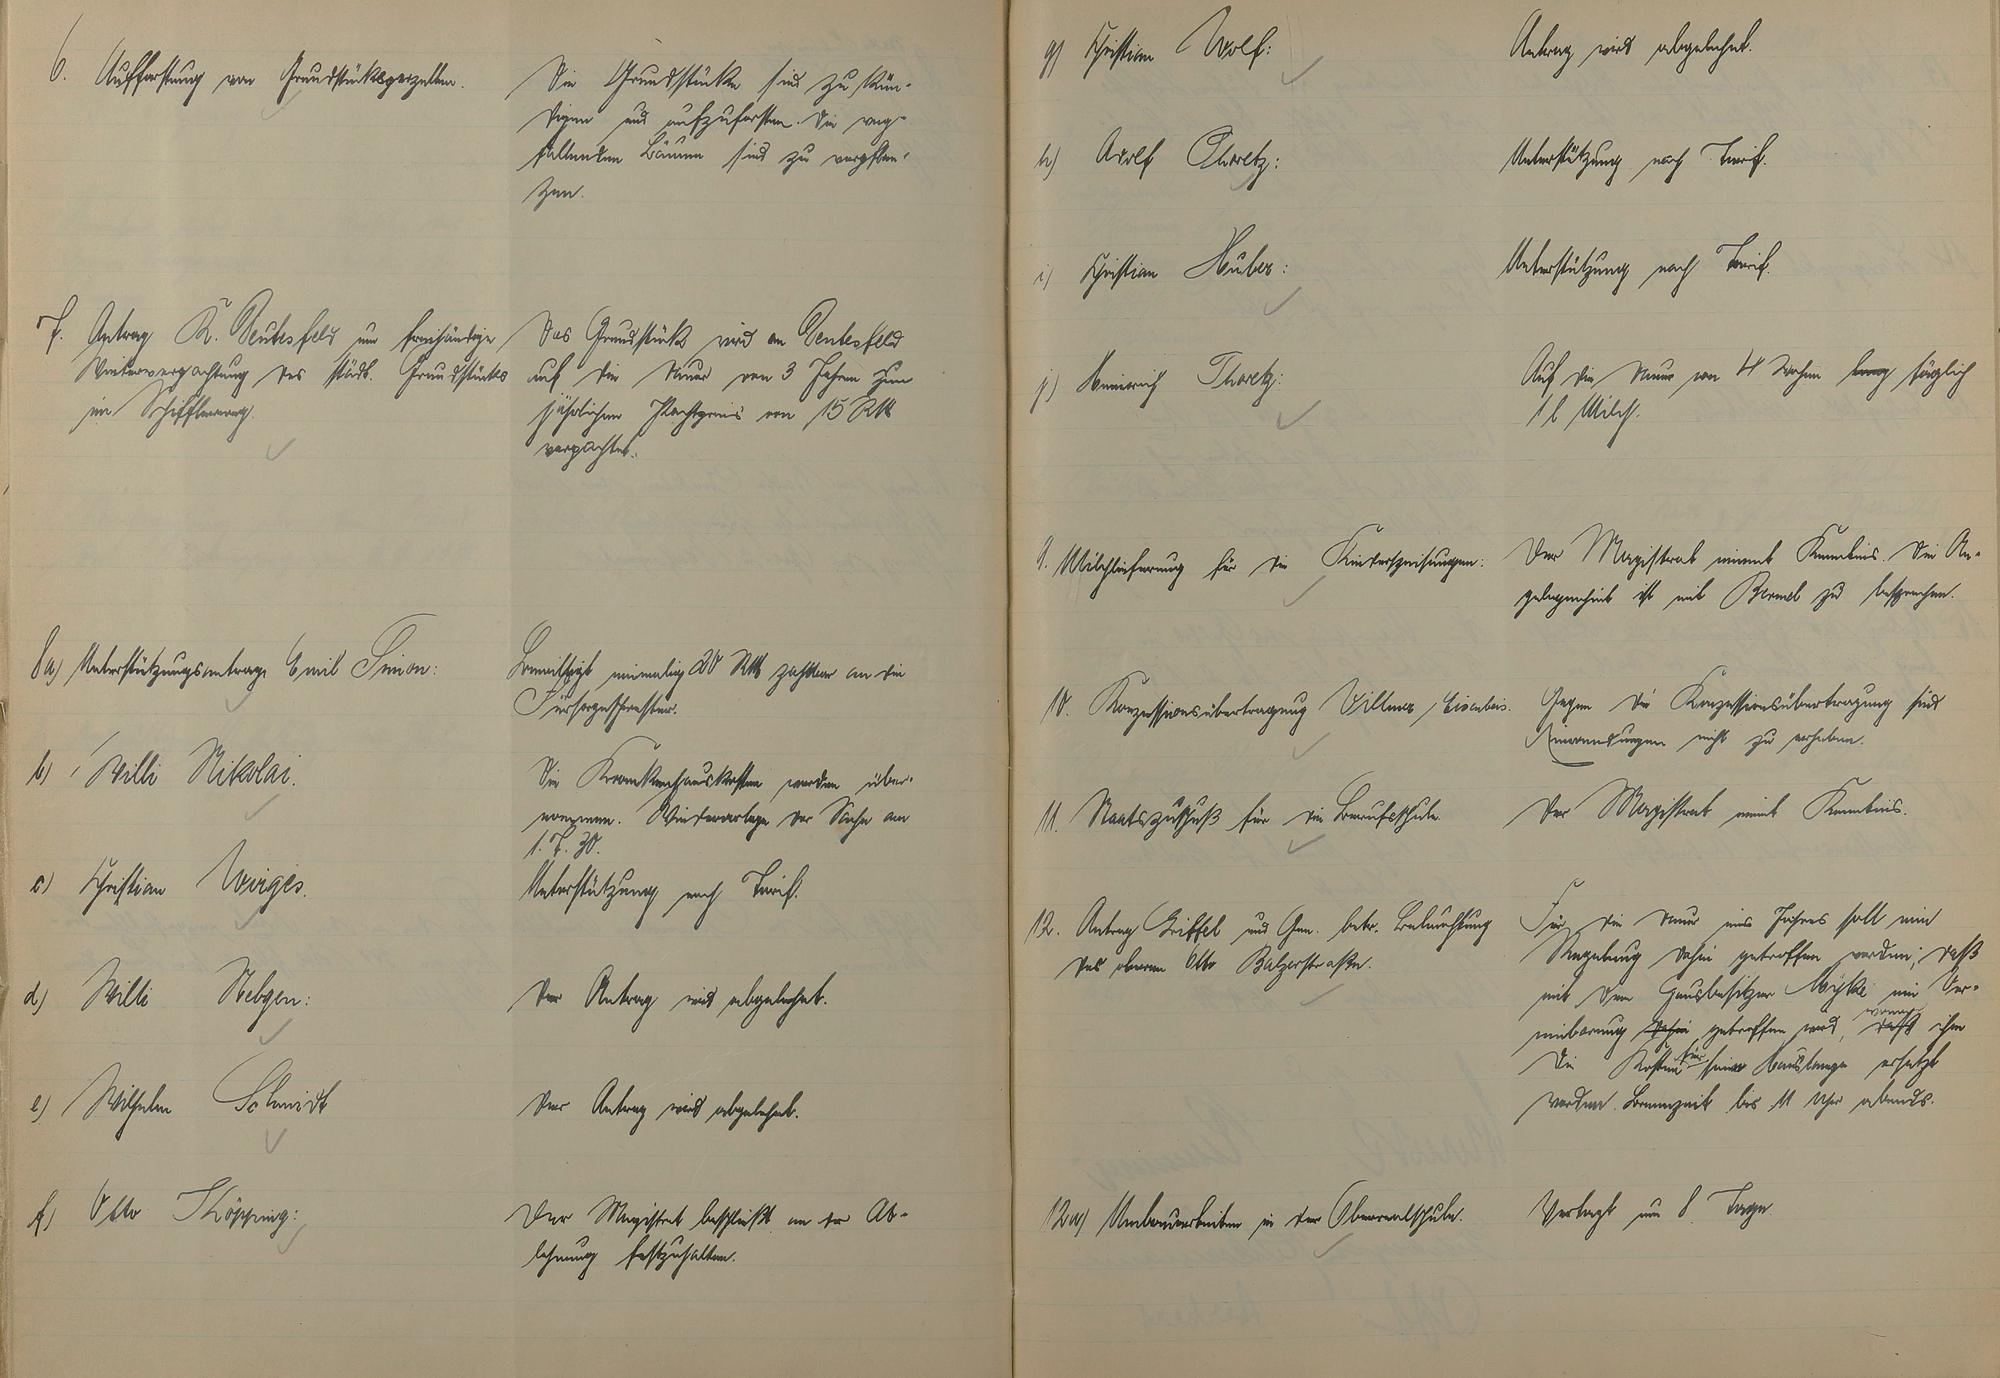 6. Aufforstung von Grundstücksparzellen.
Die Grundstücke sind zu kün-
digen und aufzuforsten. Die weg-
fallenden Bäume sind zu verpflan-
zen.
7. Antrag K. Pentesfeld um freihändige
Weiterverpachtung des städt. Grundstücks
im Schifflerweg.
Das Grundstück wird an Pentesfeld
auf die Dauer von 3 Jahren zum
jährlichen Pachtpreis von 15 RM
verpachtet.
8a) Unterstützungsantrag Emil Simon:
Bewilligt einmalig 20 RM zahlbar an die
Fürsorgeschwester.
b) Willi Nikolai.
Die Krankenhauskosten werden über-
nommen. Wiedervorlage der Sache am
1. 7. 30.
c) Christian Wirges.
Unterstützung nach Tarif.
d) Willi Nebgen:
Der Antrag wird abgelehnt.
e) Wilhelm Schmidt
Der Antrag wird abgelehnt.
f) Otto Köpping:
Der Magistrat beschließt an der Ab-
lehnung festzuhalten.
g) Christian Wolf:
Antrag wird abgelehnt.
h) Adolf Thoretz:
Unterstützung nach Tarif.
i) Christian Huber:
Unterstützung nach Tarif.
j) Heinrich Thoretz:
Auf die Dauer von 4 Wochen lang täglich
1 l Milch.
9. Milchlieferung für die Kinderspeisungen:
Der Magistrat nimmt Kenntnis. Die An-
gelegenheit ist mit Bermel zu besprechen.
10. Konzessionsübertragung Villmar / Eisenbeis.
Gegen die Konzessionsübertragung sind
Einwendungen nicht zu erheben.
11. Staatszuschuß für die Berufsschule.
Der Magistrat nimmt Kenntnis.
12. Antrag Griffel und Gen. betr. Beleuchtung
des oberen Otto Balzerstraße.
Für die Dauer eines Jahres soll eine
Regelung dahin getroffen werden, daß
mit dem Hausbesitzer eine Ver-
einbarung dahin getroffen wird, wonach daß ihm
die Kosten für seiner Hauslampe ersetzt
werden. Brennzeit bis 11 Uhr abends.
12a) Umbauarbeiten in der Oberrealschule.
Vertagt um 8 Tage.